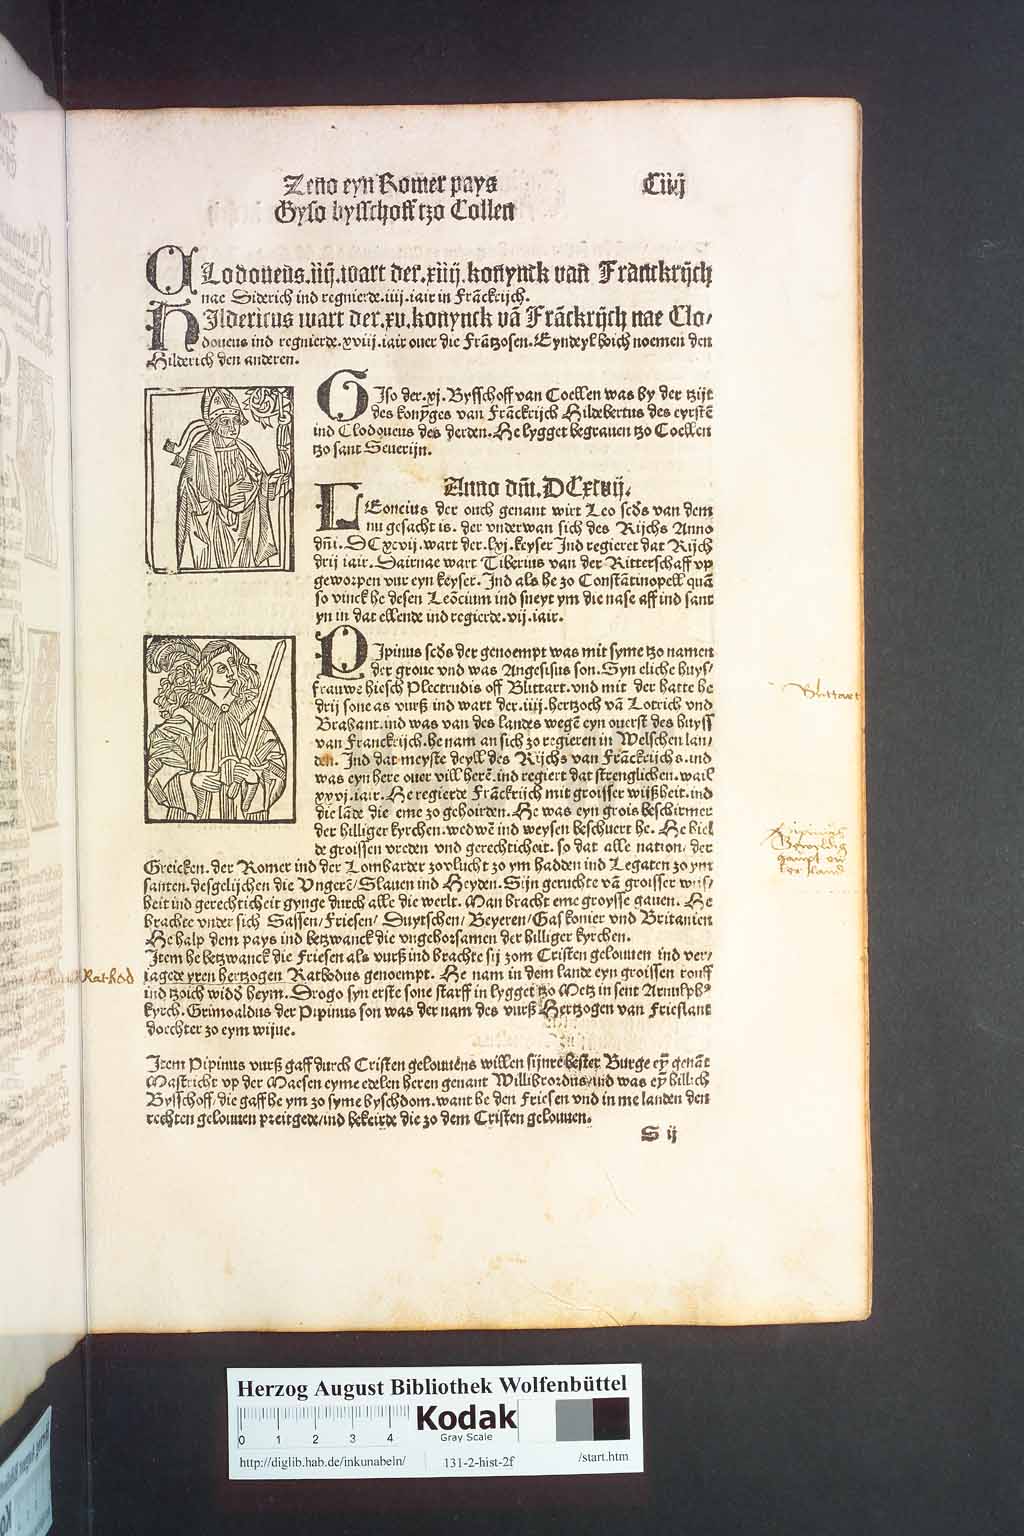 Zeno eyn Romer pays
Ciiij
Gyso bysschoff tzo Collen
CLodoueus.iiij.wart der.xiiij.konynck van Franckrijch
nae Diderich ind regnierde.iiij.iair in Frãckrijch.
HIldericus wart der.xv.konynck vã Frãckrijch nae Clo/
doueus ind regnierde.xviij.iair ouer die Frãtzosen.Eyndeyl hoich noemen den
Hilderich den anderen.
GIso der.xj.Bysschoff van Coellen was by der tzijt
des konỹges van Frãckrijch Hildebertus des eyrstẽ
ind Clodoueus des derden.He lygget begrauen tzo Coellen
tzo sant Seuerijn.
Anno dm̃.DCxcvij.
LEoncius der ouch genant wirt Leo scd̃s van dem
nu gesacht is. der vnderwan sich des Rijchs Anno
dñi.DCxcvij.wart der.lxj.keyser Ind regieret dat Rijch
drij iair.Dairnae wart Tiberius van der Ritterschaff vp
geworpen vur eyn keyser.Ind als he zo Constãtinopell quã
so vinck he desen Leõcium ind sneyt ym die nase aff ind sant
yn in dat ellende ind regierde.vij.iair.
PIpinus scd̃s der genoempt was mit syme tzo namen
der groue vnd was Angesisus son.Syn eliche huys/
frauwe hiesch Plectrudis off Blittart.vnd mit der hatte he
drij sone as vurß ind wart der.iiij.hertzoch vã Lotrich vnd
Brabant.ind was van des landes wegẽ eyn ouerst des huyss
van Franckrijch.he nam an sich zo regieren in Welschen lan/
den. Ind dat meyste deyll des Rijchs van Frãckrijchs.ind
was eyn here ouer vill herẽ.ind regiert dat strenglichen.wail
xxvj.iair.He regierde Frãckrijch mit groisser wijßheit.ind
die lãde die eme zo gehoirden.He was eyn grois beschirmer
der hilliger kyrchen.wedwẽ ind weysen beschuert he. He hiel
de groissen vreden vnd gerechticheit. so dat alle nation. der
Greicken.der Romer ind der Lombarder zovlucht zo ym hadden ind Legaten zo ym
santen.desgelijchen die Vngerẽ/Slauen ind Heyden.Sijn geruchte vã groisser wijs/
heit ind gerechticheit gynge durch alle die werlt.Man bracht eme groysse gauen. He
brachte vnder sich Sassen/Friesen/Duytschen/Beyeren/Gaskonier vnd Britanien
He halp dem pays ind betzwanck die vngehorsamen der hilliger kyrchen.
Item he betzwanck die Friesen als vurß ind brachte sij zom Cristen gelouuen ind ver/
iagede yren hertzogen Ratbodus genoempt. He nam in dem lande eyn groissen rouff
ind tzoich widd̃ heym.Drogo syn erste sone starff in lygget tzo Metz in sent Arnulphꝰ
kyrch.Grimoaldus der Pipinus son was der nam des vurß Hertzogen van Frieslant
doechter zo eym wijue.
Item Pipinus vurß gaff durch Cristen gelouuens willen sijnre bester Burge eỹ genãt
Mastricht vp der Maesen eyme edelen heren genant Willibrordus/ind was eỹ hillich
Bysschoff.die gaff he ym zo syme byschdom.want he den Friesen vnd in me landen den
rechten gelouuen preitgede/ind bekeirde die zo dem Cristen gelouuen.
S ij
Blittart
Pipinus
Rathod
Herzog August Bibliothek Wolfenbüttel
Kodak
Gray Scale
0 1 2 3 4
http://diglib.hab.de/inkunabeln/
131-2-hist-2f
/start.htm